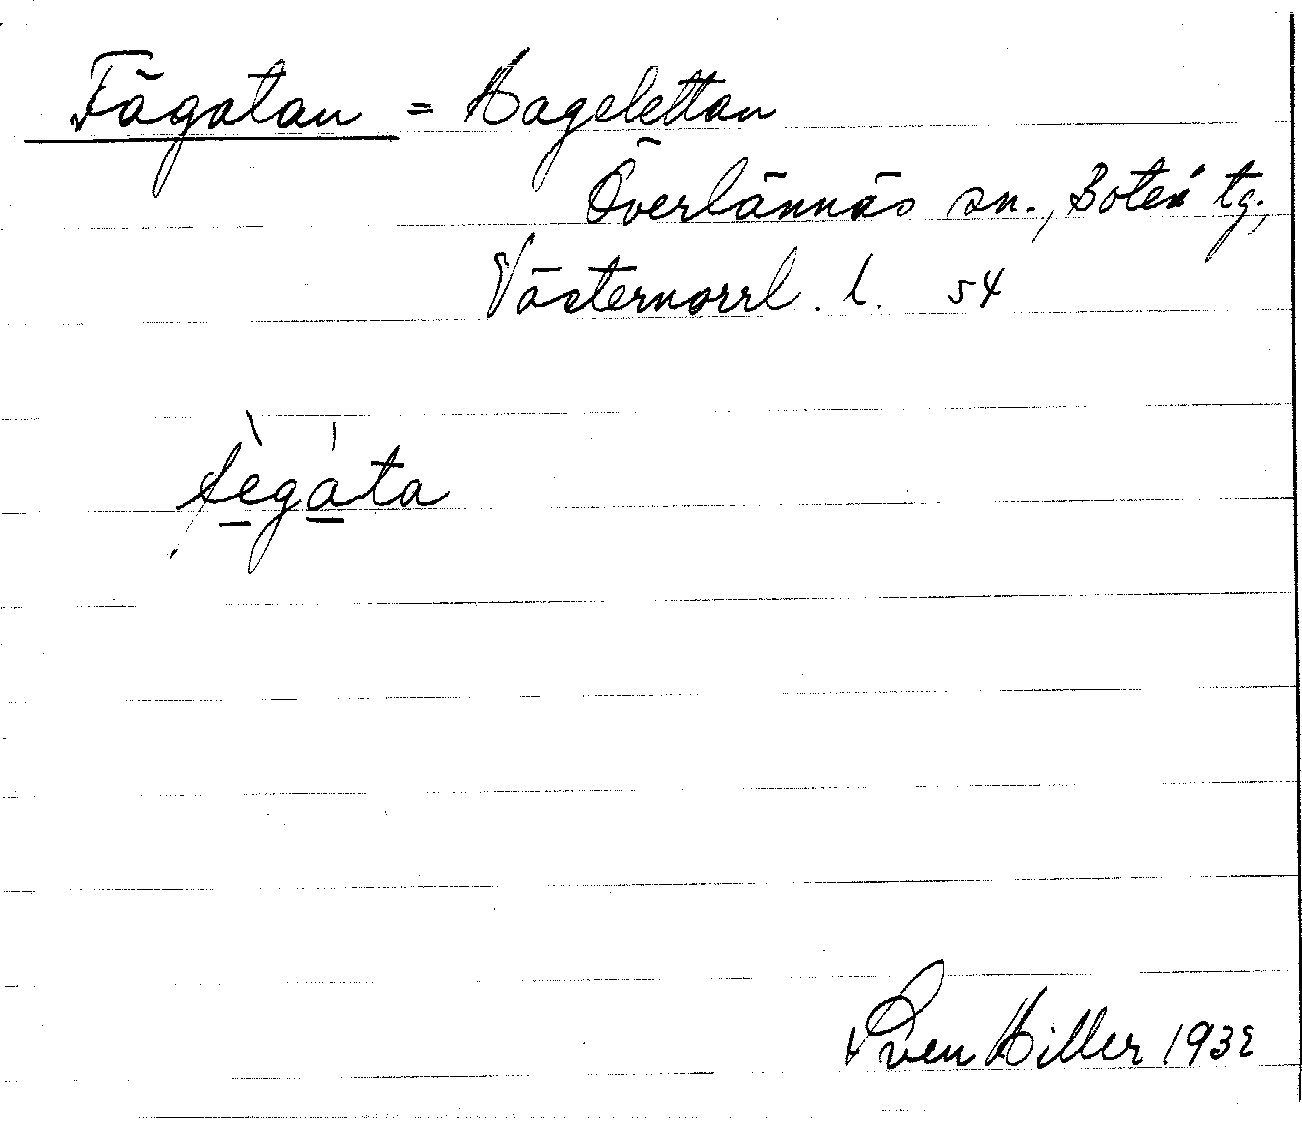 Fägatan = Hagelettan
Överlännäs sn., Boteå tg.,
Västernorrl. l. 54
fègáta
Sven Hiller 1932